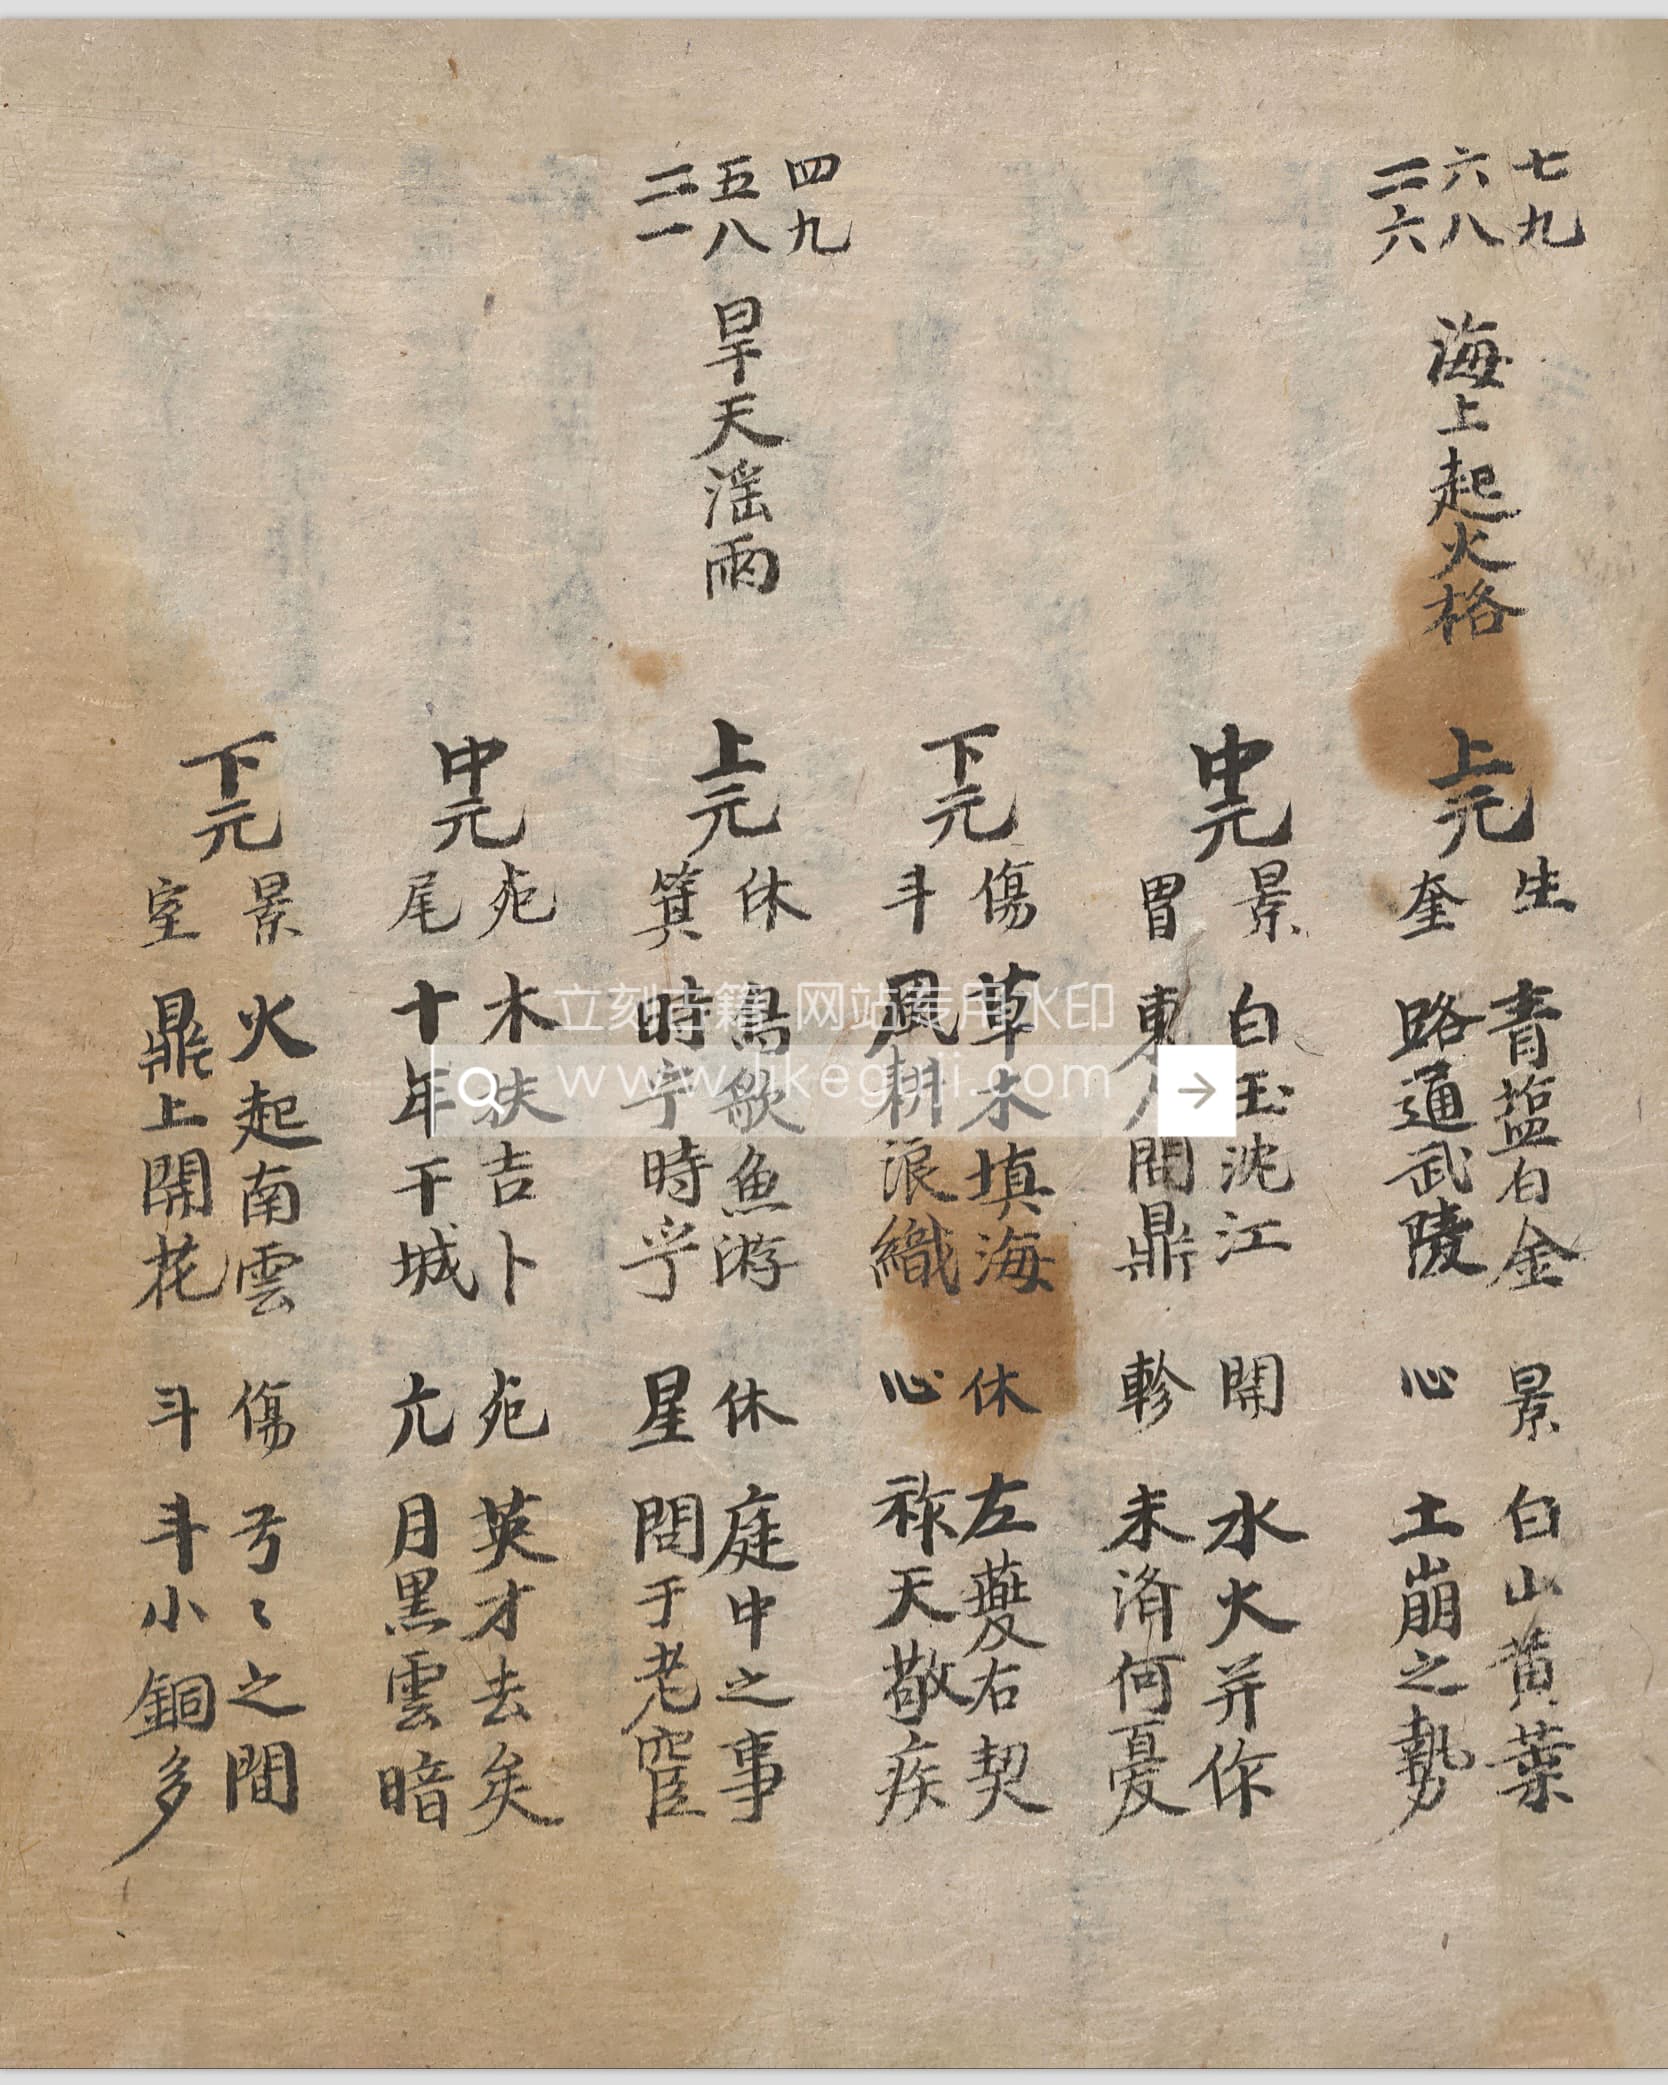 七九
六八
三六
海上起火格
上元
生 青藍白金 景 白山黄葉
奎 路通武陵 心 土崩之勢
中元
景 白玉沈江 開 水火并作
胃 東 問鼎 軫 未濟何憂
下元
傷 草木填海 休 左夔右契
斗 風耕浪織 心 祚天敬疾
四九
五八
三一
旱天滛雨
上元
休 鳥歌魚游 休 庭中之事
箕 時乎時乎 星 問于老
中元
死 木扶吉卜 死 英才去矣
尾 十年干城 亢 月黒雲暗
下元
景 火起南雲 傷 々之間
室 鼎上開花 斗 斗小銅多
立刻古籍 网站专用水印
www.likeguji.com